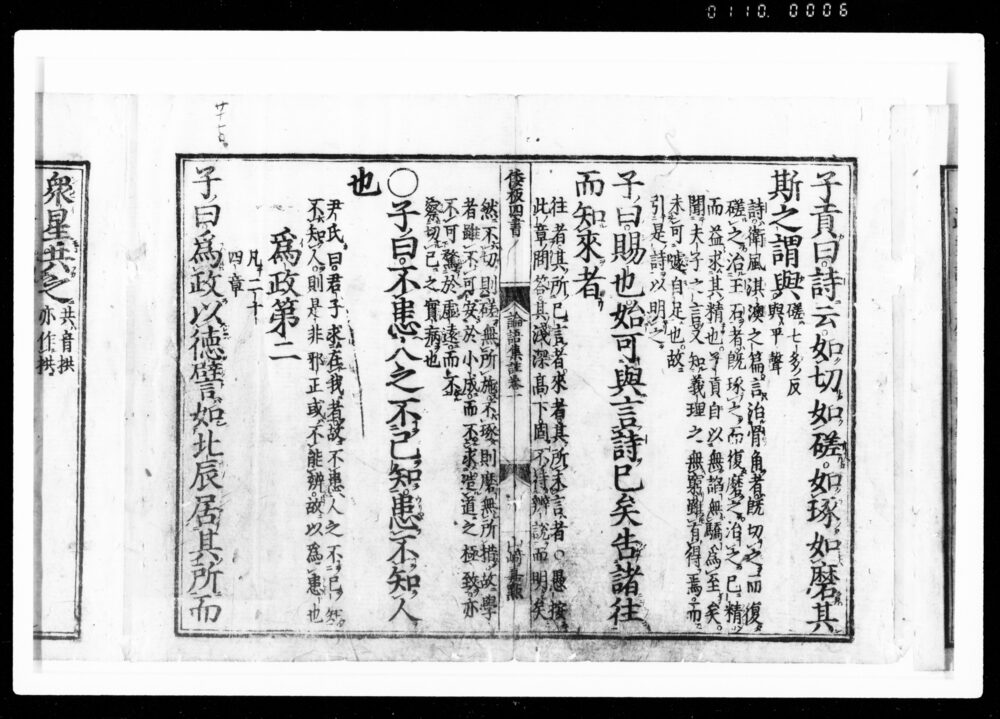 0110 0006
子貢曰詩云如切如磋如琢如磨其
斯之謂與磋七多反
與平聲
詩衛風淇澳之篇言治骨角者既切之而復
磋之治玉石者既琢之而復磨之治之已精
而益求其精也子貢自以無諂無驕爲至矣
聞夫子之言又知義理之無窮雖有得焉而
未可遽自足也故
引是詩以明之
子曰賜也始可與言詩已矣告諸往
而知來者
往者其所已言者來者其所未言者○愚按
此章問答其淺深高下固不待辨說而明矣
倭板四書
論語集註卷一
山崎嘉點
然不切則磋無所施不琢則磨無所措故學
者雖不可安於小成而不求造道之極致亦
不可騖於虛遠而不
察切己之實病也
○子曰不患人之不己知患不知人
也
尹氏曰君子求在我者故不患人之不己知
不知人則是非邪正或不能辨故以爲患也
爲政第二
凡二十
四章
子曰爲政以德譬如北辰居其所而
衆星共之共音拱
亦作拱